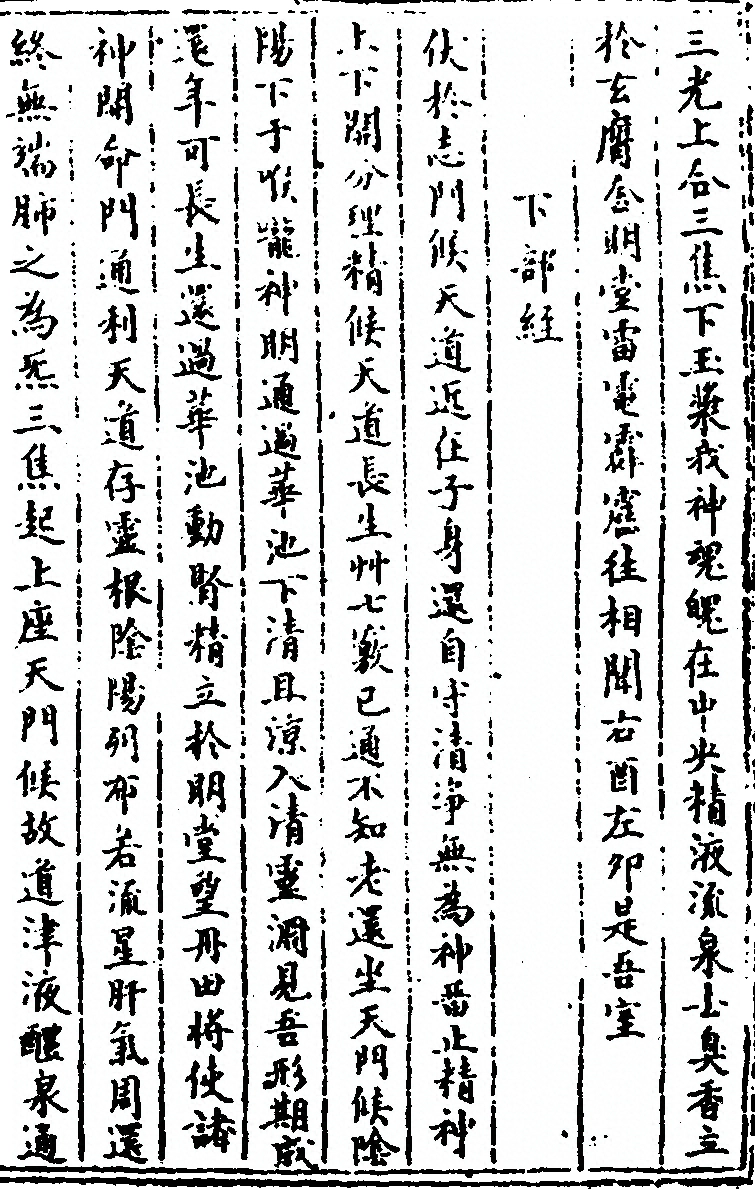 三光上合三焦下玉漿我神魂魄在中央精液流泉去臭香立
於玄膺含明堂雷電霹靂往相聞右酉左卯是吾室
下部經
伏於志門候天道近在子身還自守清淨無為神留止精神
上下開分理精候天道長生艸七竅已通不知老還坐天門候陰
陽下于喉嚨神明通過華池下清且涼入清靈淵見吾形期成
還年可長生還過華池動腎精立於明堂望丹田將使諸
神開命門通利天道存靈根陰陽列布若流星肝氣周還
終無端肺之為炁三焦起上座天門候故道津液醴泉通